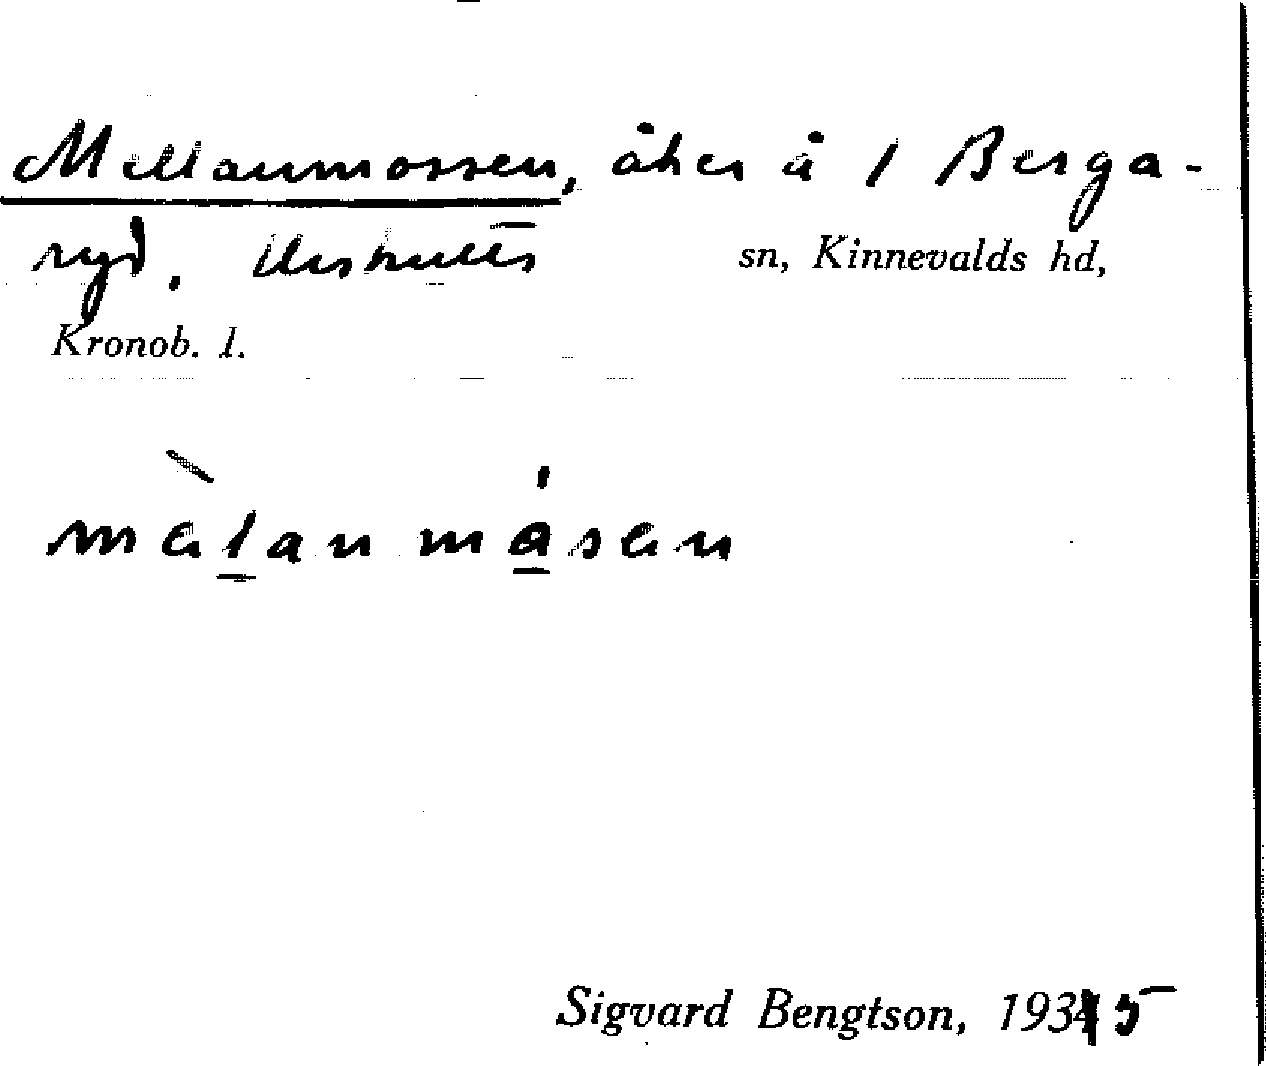 Mellanmossen, åker å 1 Berga-
ryd, Urshults sn, Kinnevalds hd,
Kronob. l.
mèlanmåsen
Sigvard Bengtson, 1935